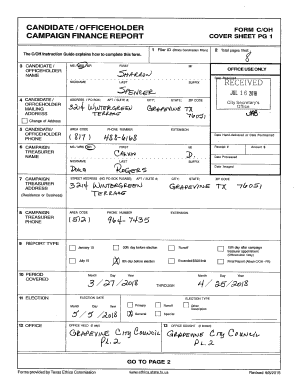 CANDIDATE / OFFICEHOLDER
CAMPAIGN FINANCE REPORT
FORM C/OH
COVER SHEET PG 1
The C/OH Instruction Guide explains how to complete this form.
1 Filer ID (Ethics Commission Filers)
2 Total pages filed:
8
3 CANDIDATE / OFFICEHOLDER NAME
FIRST
MI
SHARRON
NICKNAME
LAST
SUFFIX
SPENCER
OFFICE USE ONLY
Date Received
RECEIVED
JUL 16 2018
City Secretary's Office
4 CANDIDATE / OFFICEHOLDER MAILING ADDRESS
Change of Address
ADDRESS / PO BOX; APT / SUITE #; CITY; STATE; ZIP CODE
3214 WINTERGREEN TERRACE
GRAPEVINE TX 76051
5 CANDIDATE/ OFFICEHOLDER PHONE
AREA CODE
PHONE NUMBER
EXTENSION
(817) 488-6168
Date Hand-delivered or Date Postmarked
6 CAMPAIGN TREASURER NAME
MS / MRS / MR
FIRST
MI
CALVIN
D.
NICKNAME
LAST
SUFFIX
ROGERS
Receipt #
Amount $
Date Processed
Date Imaged
7 CAMPAIGN TREASURER ADDRESS
(Residence or Business)
STREET ADDRESS (NO PO BOX PLEASE); APT / SUITE #; CITY; STATE; ZIP CODE
3214 WINTERGREEN TERRACE
GRAPEVINE TX 76051
8 CAMPAIGN TREASURER PHONE
AREA CODE
PHONE NUMBER
EXTENSION
964-7435
9 REPORT TYPE
January 15
30th day before election
Runoff
15th day after campaign treasurer appointment (Officeholder Only)
July 15
8th day before election
Exceeded $500 limit
Final Report (Attach C/OH - FR)
10 PERIOD COVERED
Month Day Year
3/27/2018
THROUGH
Month Day Year
4/25/2018
11 ELECTION
ELECTION DATE
Month Day Year
5/5/2018
ELECTION TYPE
Primary
Runoff
Other Description
General
Special
12 OFFICE
OFFICE HELD (if any)
GRAPEVINE CITY COUNCIL
PL. 2
13 OFFICE SOUGHT (if known)
GRAPEVINE CITY COUNCIL
PL. 2
GO TO PAGE 2
Forms provided by Texas Ethics Commission
www.ethics.state.tx.us
Revised 9/8/2015